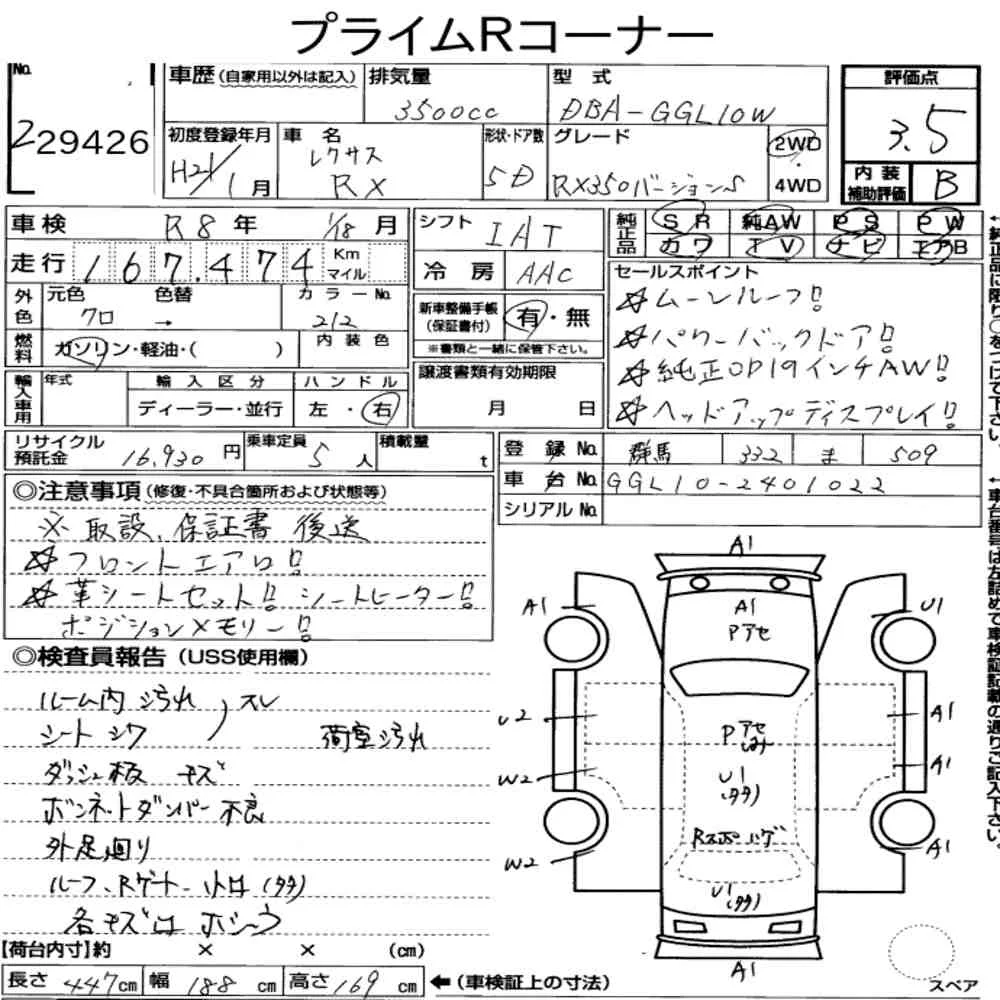 プライムRコーナー
No. 229426
車歴(自家用以外は記入)
排気量 3500cc
型式 DBA-GGL10W
評価点 3.5
初度登録年月 H21/1月
車名 レクサス RX
形状・ドア数 5D
グレード RX350バージョンS
2WD・4WD
内装補助評価 B
車検 R8年 1/18月
シフト IAT
純正品 SR 純AW PS PW
カワ TV ナビ エアB
走行 167,474 Km マイル
冷房 AAC
セールスポイント
☆ムーンルーフ!!
☆パワーバックドア!!
☆純正OP19インチAW!!
☆ヘッドアップディスプレイ!!
外色 元色 色替 カラーNo.
クロ → 212
新車整備手帳(保証書付) 有・無
※書類と一緒に保管下さい。
燃料 ガソリン・軽油・( )
内装色
輸入車用 年式 輸入区分 ハンドル
ディーラー・並行 左・右
譲渡書類有効期限
月 日
リサイクル預託金 16,930円
乗車定員 5人
積載量 t
登録No. 群馬 332 ま 509
車台No. GGL10-2401022
シリアルNo.
◎注意事項(修復・不具合箇所および状態等)
※取説、保証書 後送
☆フロントエアロ!!
☆革シートセット!! シートヒーター!!
ポジションメモリー!!
◎検査員報告(USS使用欄)
ルーム内 汚れ、スレ
シート シワ
荷室汚れ
ダッシュ板 キズ
ボンネットダンパー不良
外足廻り
ルーフ、Rゲート、小凹(タタ)
各キズ凹 ボシーフ
A1
A1
A1
Pアセ
U1
U2
Pアセ
A1
W2
U1
(タタ)
A1
Rスポ ハゲ
W2
A1
U1
(タタ)
A1
スペア
【荷台内寸】約 × × (cm)
長さ 447cm 幅 188cm 高さ 169cm
←(車検証上の寸法)
←純正品に限り○をつけて下さい。
←車台番号は左詰めで車検証記載の通りご記入下さい。